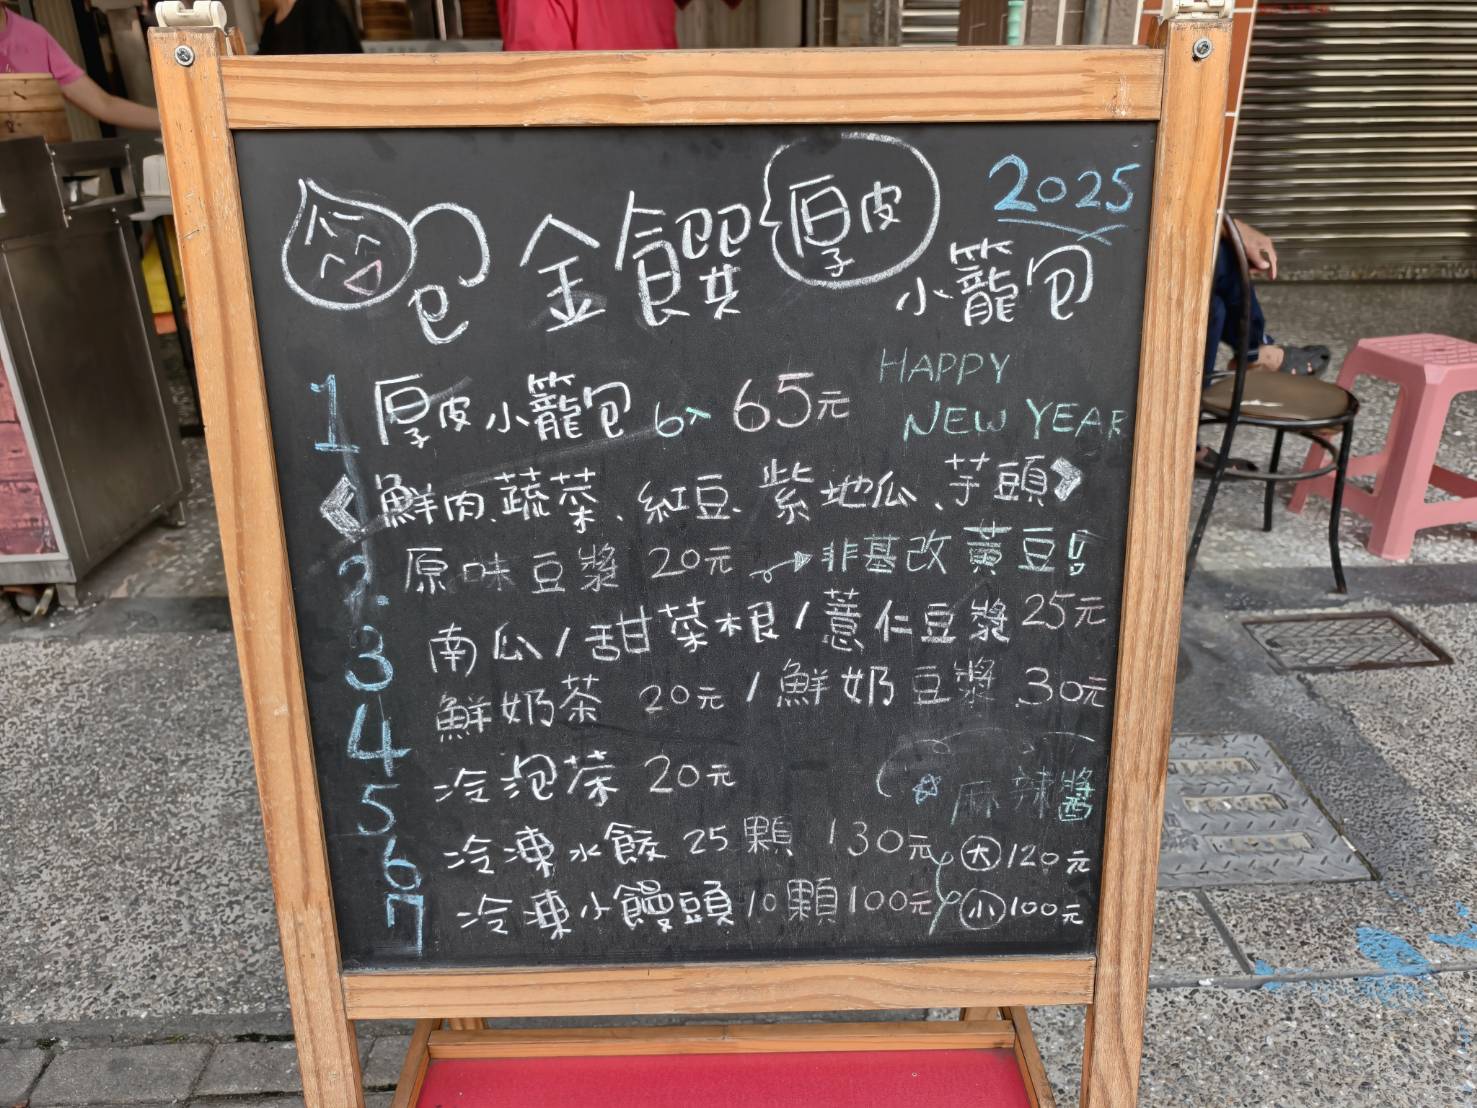 2025
包 金饌 厚皮 小籠包
HAPPY
NEW YEAR
1 厚皮小籠包 6入 65元
《鮮肉、蔬菜、紅豆、紫地瓜、芋頭》
2. 原味豆漿 20元 → 非基改黃豆!
3 南瓜/甜菜根/薏仁豆漿 25元
4 鮮奶茶 20元 / 鮮奶豆漿 30元
5 冷泡茶 20元
6 冷凍水餃 25顆 130元
7 冷凍小饅頭 10顆 100元
☆ 麻辣醬
大 120元
小 100元